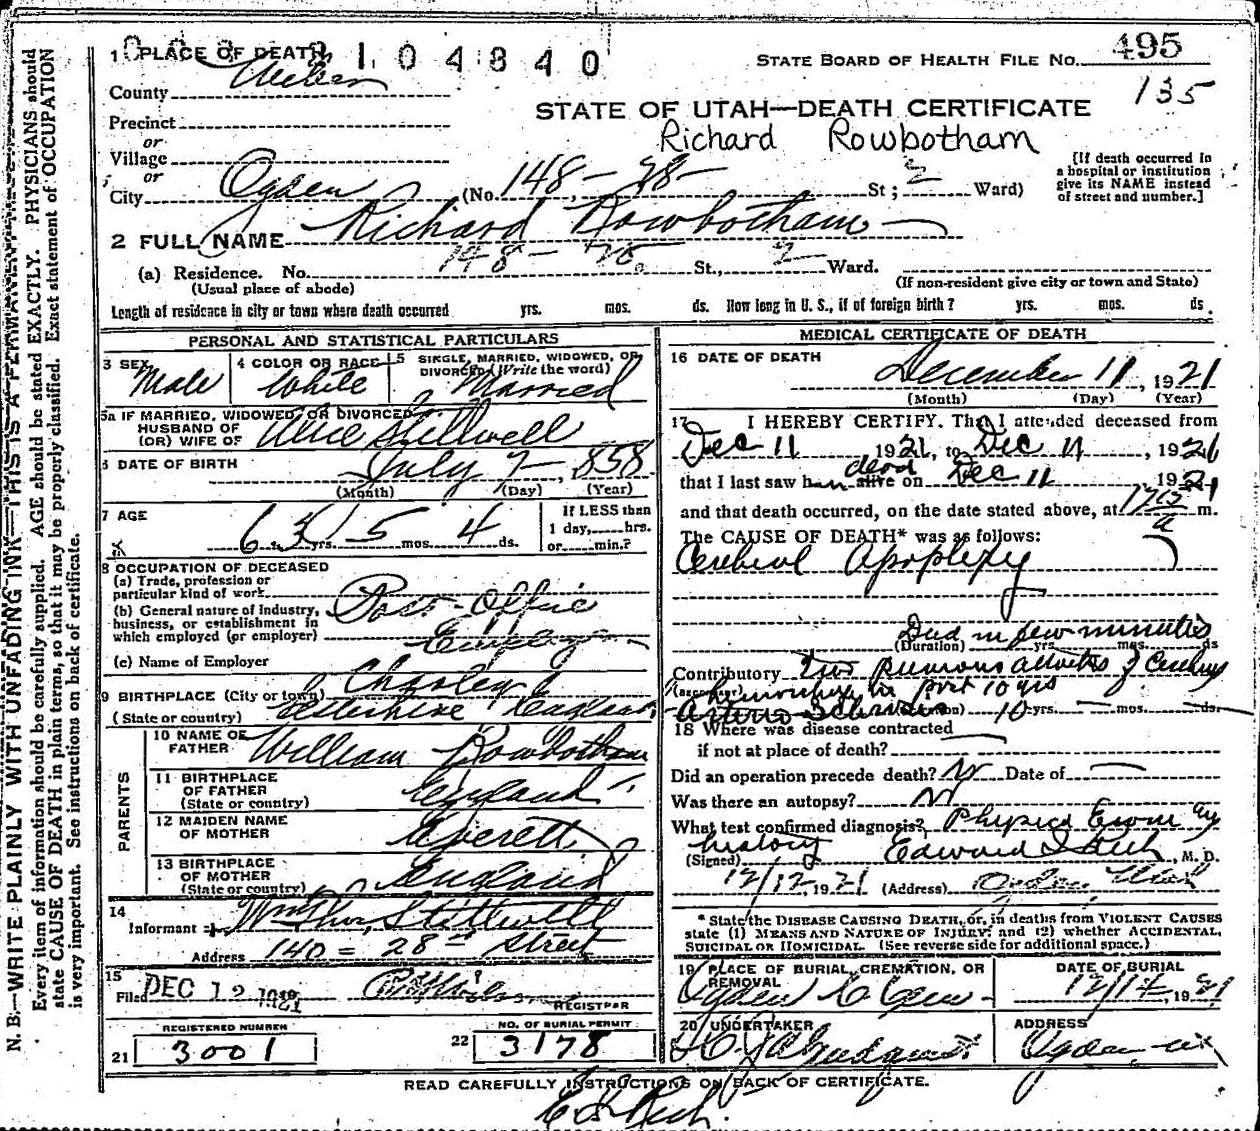 1 PLACE OF DEATH 104840
STATE BOARD OF HEALTH FILE No. 495
135
County Weber
STATE OF UTAH—DEATH CERTIFICATE
Precinct
Richard Rowbotham
or
Village
or
City Ogden (No. 148 - 28 - St; 2 Ward)
[If death occurred in
a hospital or institution
give its NAME instead
of street and number.]
2 FULL NAME Richard Rowbotham
(a) Residence. No. 148 - 28 St., 2 Ward.
(Usual place of abode) (If non-resident give city or town and State)
Length of residence in city or town where death occurred yrs. mos. ds. How long in U. S., if of foreign birth? yrs. mos. ds.
PERSONAL AND STATISTICAL PARTICULARS
3 SEX Male
4 COLOR OR RACE White
5 SINGLE, MARRIED, WIDOWED, OR
DIVORCED (Write the word) Married
5a IF MARRIED, WIDOWED, OR DIVORCED
HUSBAND OF
(OR) WIFE OF Alice Stillwell
6 DATE OF BIRTH July 7 - 1858
(Month) (Day) (Year)
7 AGE 63 yrs. 5 mos. 4 ds.
If LESS than
1 day, hrs.
or min.?
8 OCCUPATION OF DECEASED
(a) Trade, profession or
particular kind of work Post-Office
(b) General nature of industry,
business, or establishment in
which employed (or employer)
(c) Name of Employer
9 BIRTHPLACE (City or town) Charley
(State or country) England
PARENTS
10 NAME OF
FATHER William Rowbotham
11 BIRTHPLACE
OF FATHER
(State or country) England
12 MAIDEN NAME
OF MOTHER Averett
13 BIRTHPLACE
OF MOTHER
(State or country) England
14
Informant Stillwell
Address 140 = 28th Street
15
Filed DEC 12 1921
REGISTRAR
REGISTERED NUMBER
21 3001
NO. OF BURIAL PERMIT
22 3178
MEDICAL CERTIFICATE OF DEATH
16 DATE OF DEATH
December 11, 1921
(Month) (Day) (Year)
17 I HEREBY CERTIFY. That I attended deceased from
Dec 11 1921, to Dec 11, 1921
that I last saw him alive dead on Dec 11 1921
and that death occurred, on the date stated above, at m.
The CAUSE OF DEATH* was as follows:
Cerebral Apoplexy
Died in few minutes
(Duration) yrs. mos. ds.
Contributory Two previous attacks of Cerebral
(Secondary) Hemorrhage in past 10 yrs
Arterio Sclerosis (Duration) 10 yrs. — mos. — ds.
18 Where was disease contracted
if not at place of death?
Did an operation precede death? N Date of —
Was there an autopsy? N
What test confirmed diagnosis? Physical Exam by
history
(Signed) Edward I Rich, M. D.
12/12, 1921 (Address) Ogden Utah
* State the DISEASE CAUSING DEATH, or, in deaths from VIOLENT CAUSES
state (1) MEANS AND NATURE OF INJURY; and (2) whether ACCIDENTAL,
SUICIDAL OR HOMICIDAL. (See reverse side for additional space.)
19 PLACE OF BURIAL, CREMATION, OR
REMOVAL
Ogden C Cem -
DATE OF BURIAL
12/14, 1921
20 UNDERTAKER
ADDRESS
Ogden
READ CAREFULLY INSTRUCTIONS ON BACK OF CERTIFICATE.
E I Rich.
N. B.—WRITE PLAINLY WITH UNFADING INK—THIS IS A PERMANENT RECORD
Every item of information should be carefully supplied. AGE should be stated EXACTLY. PHYSICIANS should
state CAUSE OF DEATH in plain terms, so that it may be properly classified. Exact statement of OCCUPATION
is very important. See instructions on back of certificate.